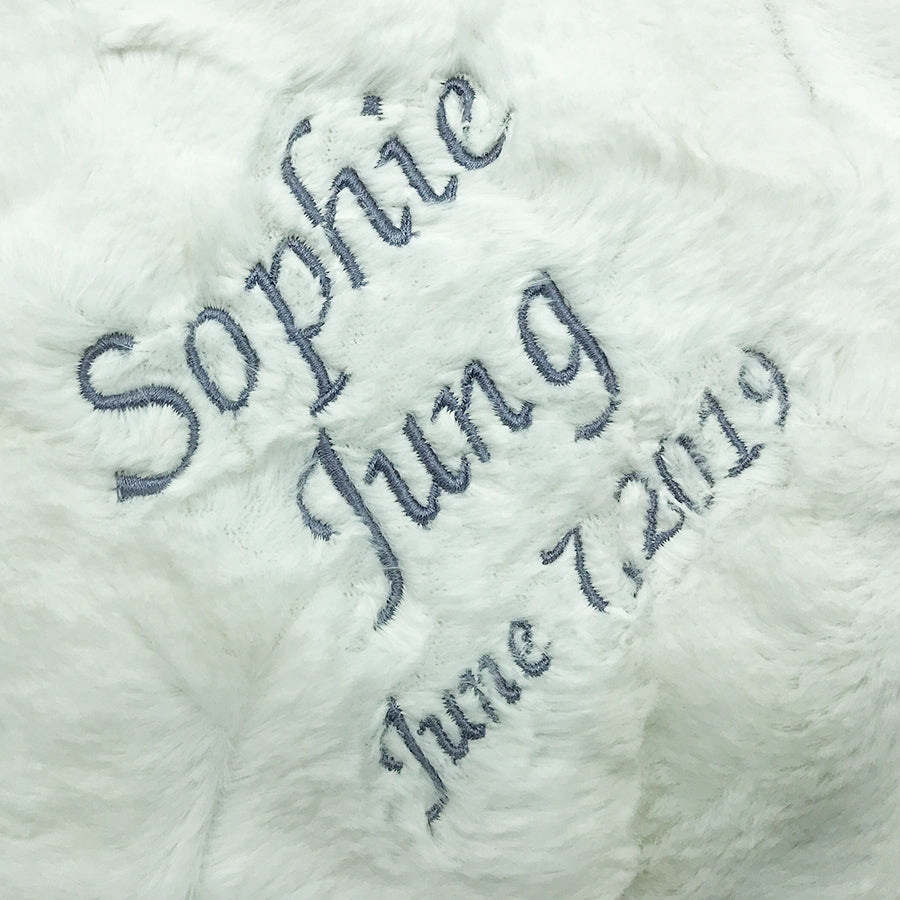 Sophie
Jung
June 7,2019